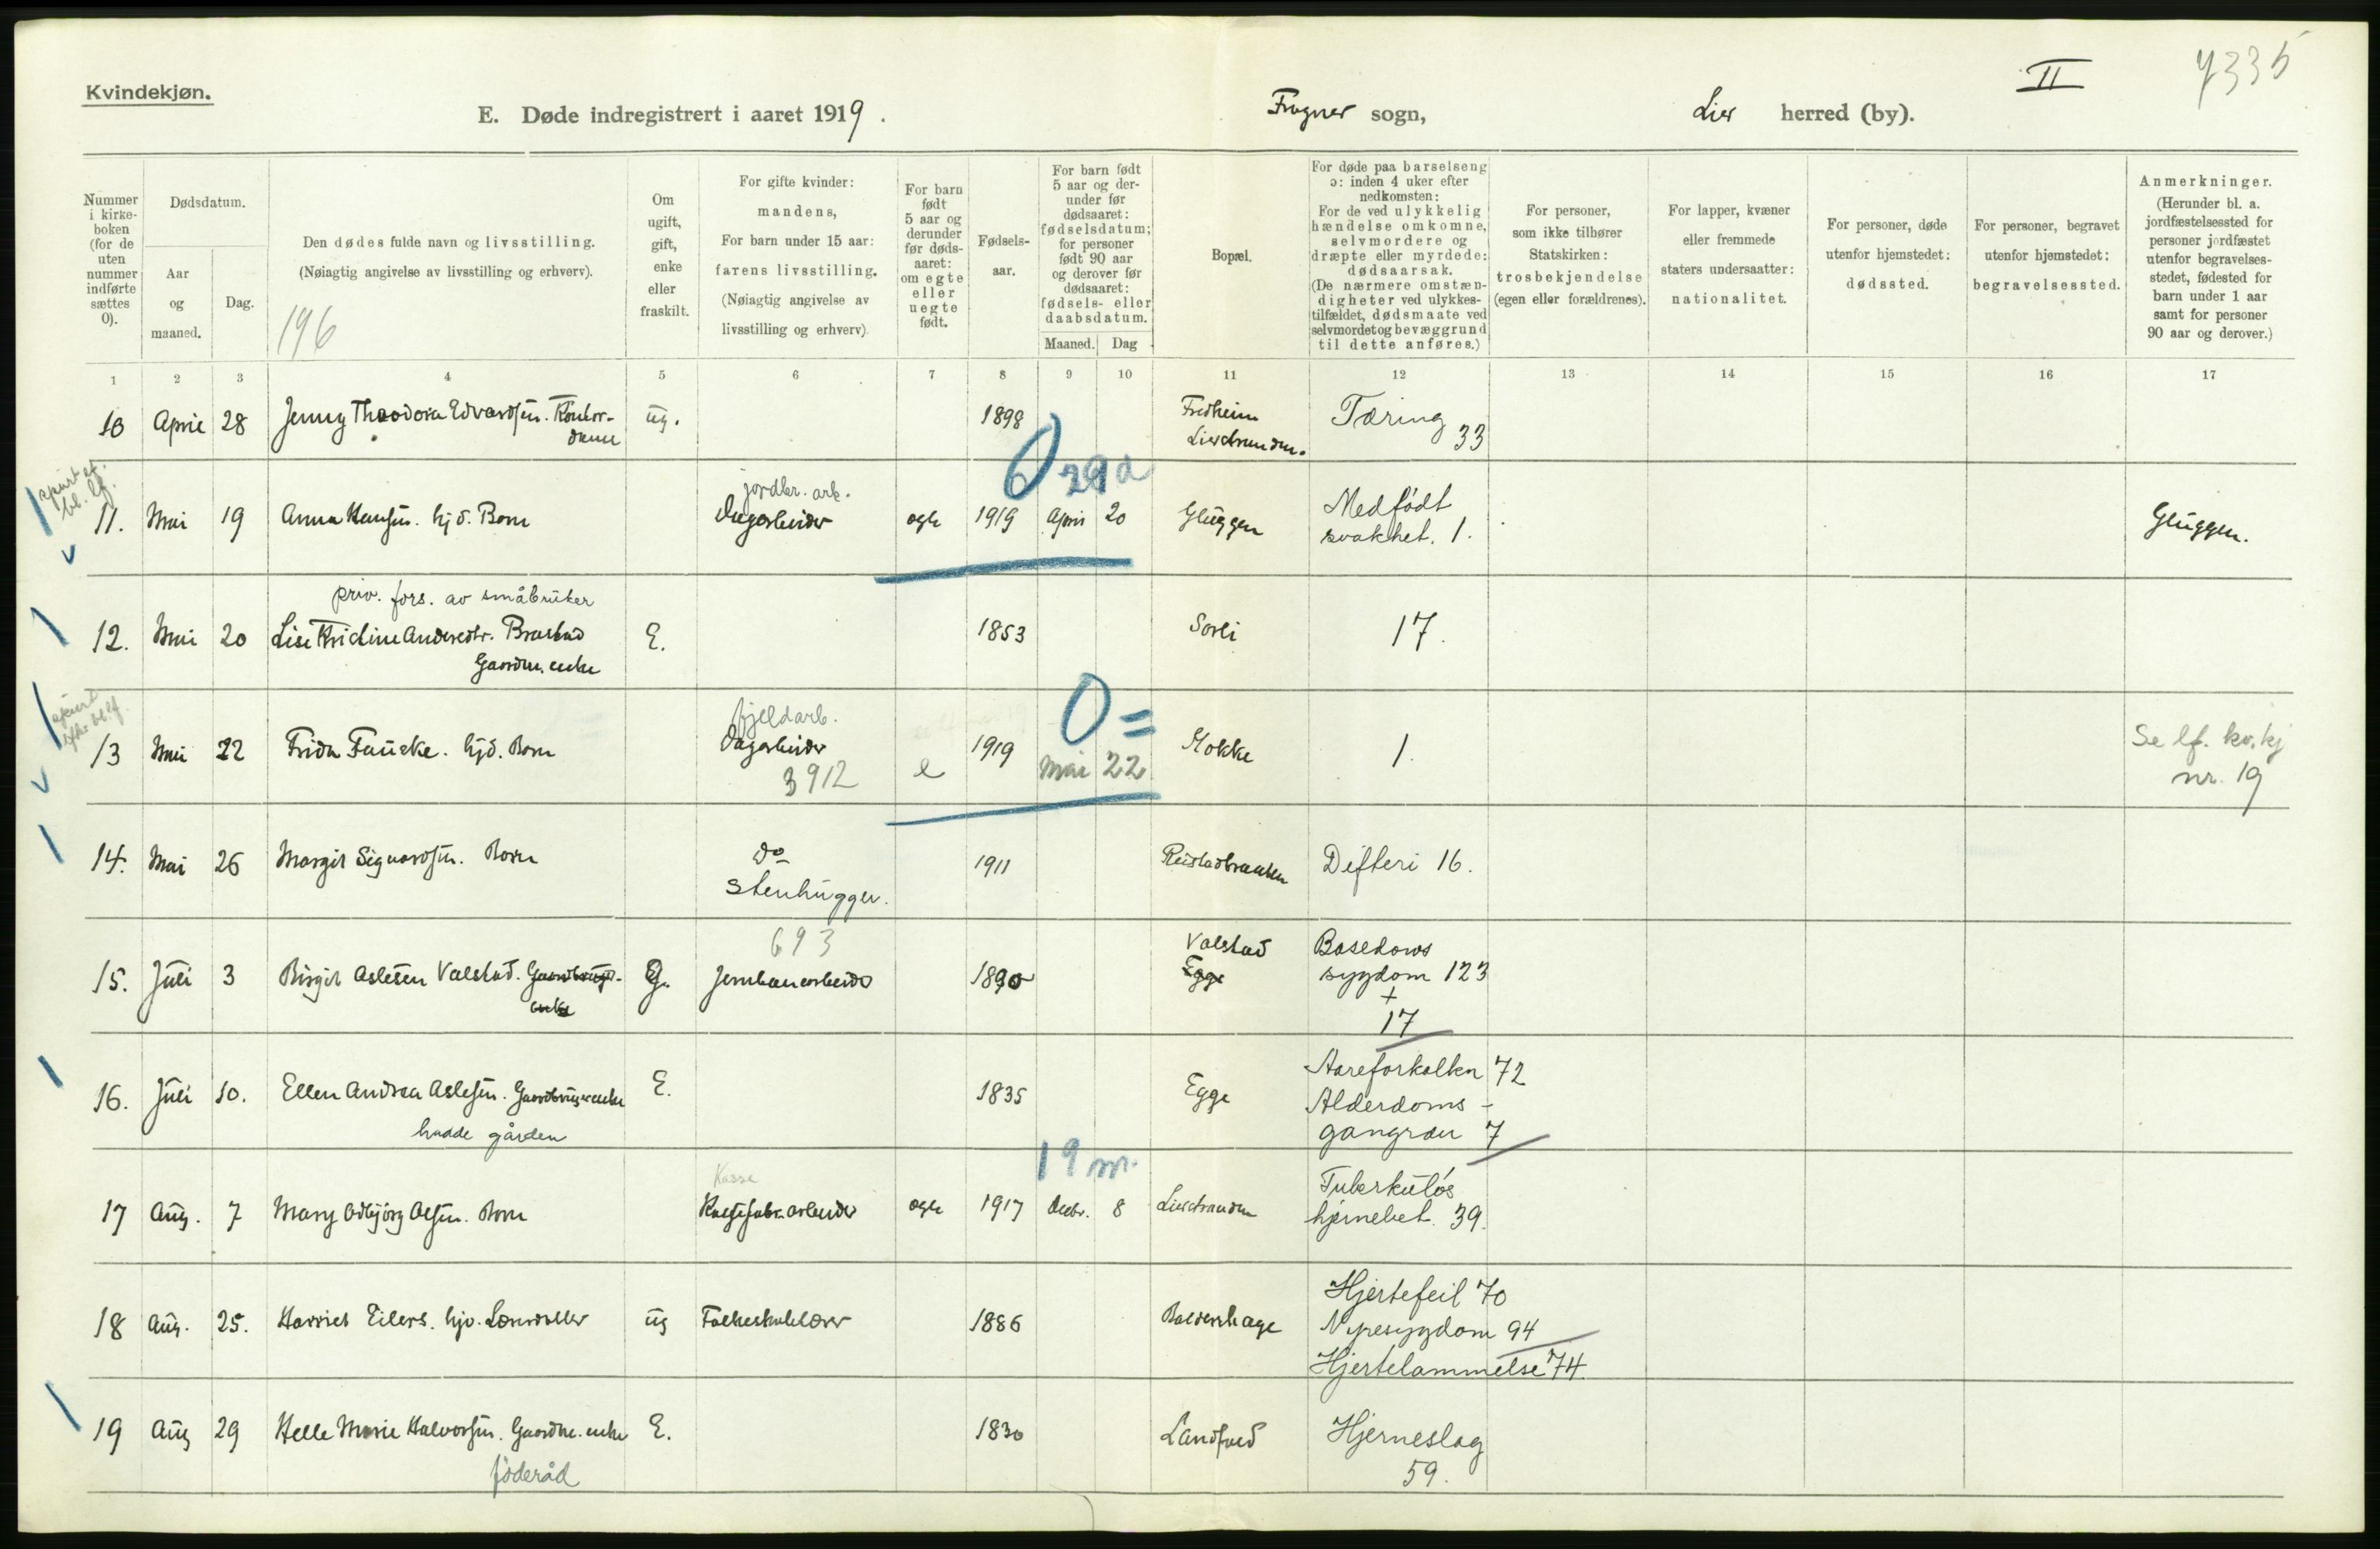 Kvindekjøn.
E. Døde indregistrert i aaret 1919.
Frogner sogn,
Lier herred (by).
II
7335
Nummer i kirke-boken (for de uten nummer indførte sættes 0).
Dødsdatum.
Aar og maaned.
Dag.
Den dødes fulde navn og livsstilling.
(Nøiagtig angivelse av livsstilling og erhverv).
196
Om ugift, gift, enke eller fraskilt.
For gifte kvinder: mandens,
For barn under 15 aar: farens livsstilling.
(Nøiagtig angivelse av livsstilling og erhverv)
For barn født 5 aar og derunder før døds-aaret: om egte eller uegte født.
Fødsels-aar.
For barn født 5 aar og der-under før dødsaaret: fødselsdatum; for personer født 90 aar og derover før dødsaaret: fødsels- eller daabsdatum.
Maaned. Dag
Bopæl.
For døde paa barselseng ɔ: inden 4 uker efter nedkomsten:
For de ved ulykkelig hændelse omkomne, selvmordere og dræpte eller myrdede: dødsaarsak.
(De nærmere omstæn-digheter ved ulykkes-tilfældet, dødsmaate ved selvmordet og bevæggrund til dette anføres.)
For personer, som ikke tilhører Statskirken: trosbekjendelse (egen eller forældrenes).
For lapper, kvæner eller fremmede staters undersaatter: nationalitet.
For personer, døde utenfor hjemstedet: dødssted.
For personer, begravet utenfor hjemstedet: begravelsessted.
Anmerkninger.
(Herunder bl. a. jordfæstelsessted for personer jordfæstet utenfor begravelses-stedet, fødested for barn under 1 aar samt for personer 90 aar og derover.)
1 2 3 4 5 6 7 8 9 10 11 12 13 14 15 16 17
10 April 28 Jenny Theodora Edvardsen. Kontor-dame ug. 1898 Fredheim Lierstranden. Tæring 33
11. Mai 19 Anna Hansen. hjd. Barn jordbr. arb. Dagarbeider egte 1919 April 20 Gluggen Medfødt svakhet. 1. Gluggen.
0 29 d
12. Mai 20 priv. fors. av småbruker
Lise Kristine Andersdtr. Brastad Gaardm. enke E. 1853 Sørli 17.
13 Mai 22 Frida Fauske. hjd. Barn fjeldarb. Dagarbeider 3912 e 1919 Mai 22 Mokke 1. Se lf. kv. kj nr. 19
0 =
14. Mai 26 Margit Sigvardsen. Barn Do Stenhugger. 1911 Difteri 16.
15. Juli 3 Birgit Aslesen Valstad. G. 693 Jernbanearbeider 1890 Valstad Egge Basedows sygdom 123 + 17
16. Juli 10. Ellen Andrea Aslesen. Gaardbrugerenke E. 1835 Egge Aareforkalkn 72
hadde gården Alderdoms-gangræn 7
19 m.
17 Aug. 7 Mary Odbjørg Olsen. Barn Kasse arbeider egte 1917 Decbr. 8 Lierstranden Tuberkuløs hjernebet. 39.
18 Aug. 25. Harriet Eilers. hjv. Lønsdatter ug Folkeskolelærer 1886 Baldershage Hjertefeil 70
Nyresygdom 94
Hjertelammelse 74.
19 Aug 29 Helle Marie Halvorsen. Gaardbr. enke E. 1830 Landfald Hjerneslag 59.
föderåd